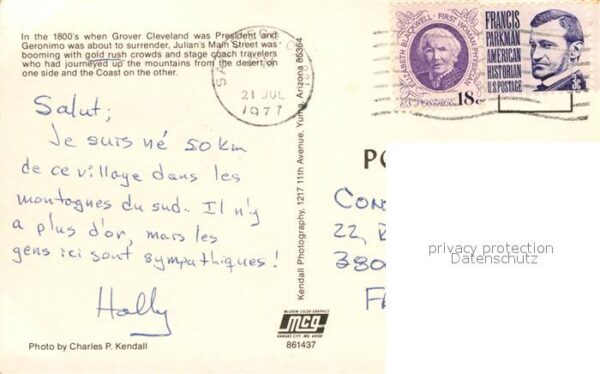 In the 1800's when Grover Cleveland was President and
Geronimo was about to surrender, Julian's Main Street was
booming with gold rush crowds and stage coach travelers
who had journeyed up the mountains from the desert on
one side and the Coast on the other.
Salut;
Je suis né 50 km
de ce village dans les
montagnes du sud. Il n'y
a plus d'or, mais les
gens ici sont sympathiques!
Holly
Photo by Charles P. Kendall
Kendall Photography, 1217 11th Avenue, Yuma, Arizona 85364
McGREW COLOR GRAPHICS
mcg
KANSAS CITY, MO. 64108
861437
21 JUL
1977
ELIZABETH BLACKWELL · FIRST WOMAN PHYSICIAN
U.S. POSTAGE 18c
FRANCIS
PARKMAN
AMERICAN
HISTORIAN
U.S. POSTAGE
3c
PO
22,
380
privacy protection
Datenschutz